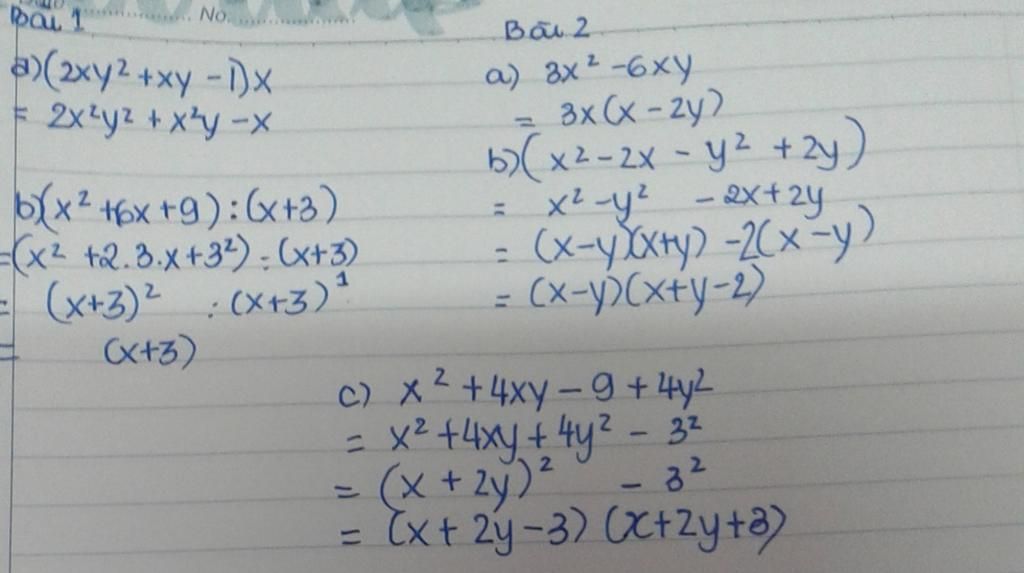 No.
Bài 1
a) (2xy² + xy - 1)x
= 2x²y² + x²y - x
b) (x² + 6x + 9) : (x+3)
= (x² + 2.3.x + 3²) : (x+3)
= (x+3)² : (x+3)¹
= (x+3)
Bài 2
a) 3x² - 6xy
= 3x(x - 2y)
b) (x² - 2x - y² + 2y)
= x² - y² - 2x + 2y
= (x-y)(x+y) - 2(x-y)
= (x-y)(x+y-2)
c) x² + 4xy - 9 + 4y²
= x² + 4xy + 4y² - 3²
= (x + 2y)² - 3²
= (x + 2y - 3) (x + 2y + 3)